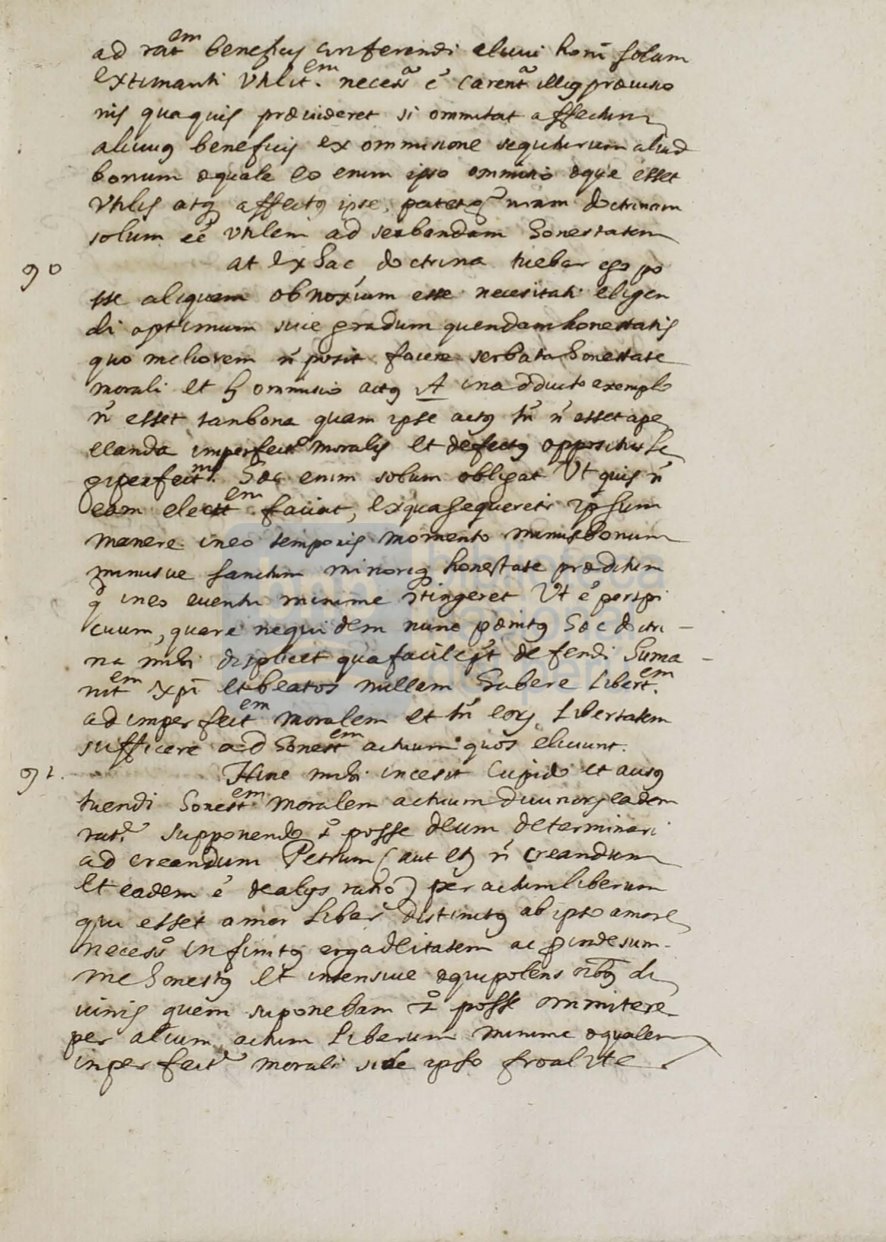 ad rat.em beneficij conferendi alicui homi solum
extimanti vtilit.em necess.a ē carent.a illiq prævisio
nis quaquis prævideret si ommitat affectum
alicuiq beneficij ex ommisione sequuturum aliud
bonum æquale eo enim ipso ommisio æque esset
vtilis atq affectq ipse, patetq nram doctrinam
solum eē vtilem ad serbandam honestatem
90 at ex hac doctrina tuebar ego po
sse aliquem obnoxium esse necesitati eligen
di optimum sive gradum quendam honestatis
quo meliorem ñ posit facere serbata honestate
morali et h ommisio actq A in adducto exemplo
ñ esset tanbona quam ipse actq tñ ñ esset ape
llanda imperfect.o moralis et defectq oppositus
hoc enim solum obligat Vt quis ñ
eam elect.em faciat, ex qua sequeretr ipsum
manere in eo temporis momento minus bonum
minusve sanctum minoriq honestate præditum
q in eo eventu minime ctingeret Vt ē perspi
cuum, quare nequidem nunc pænitq hæc doctri
na mihi displicet qua facile pt defendi Huma
nit.em Xpi et beatos nullam habere libert.em
ad imperfect.em moralem et tñ eorq libertatem
sufficere ad honest.em actuum quos eliciunt.
91. Hinc mihi incesit cupido et ausq
tuendi honest.em moralem actuum divinorq eadem
rat.e supponendo posse deum determinari
ad creandum Petrum (aut et ñ creandum
et eadem ē de alijs ratio) per actum liberum
qui esset amor liber distinctq ab ipso amore
necess.o infinitq erga deitatem ac proinde sum
me honestq et intensive æquipolens oibq di
vinis quem suponebam posse ommitere
per alium actum liberum minime æqualem
inperfect.e morali sive ipso froalite